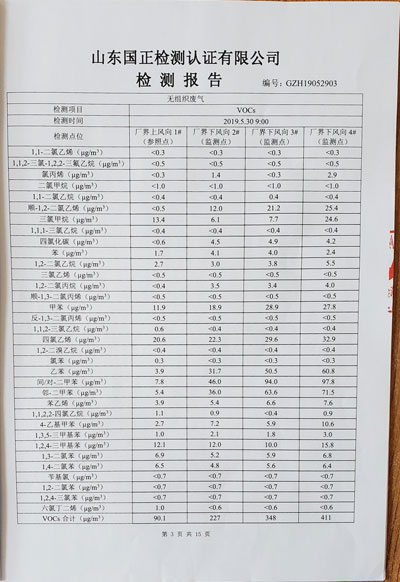 山东国正检测认证有限公司
检 测 报 告
编号：GZH19052903
无组织废气
检测项目 VOCs
检测时间 2019.5.30 9:00
检测点位 厂界上风向 1#（参照点） 厂界下风向 2#（监测点） 厂界下风向 3#（监测点） 厂界下风向 4#（监测点）
1,1-二氯乙烯（μg/m³） <0.3 <0.3 <0.3 <0.3
1,1,2-三氯-1,2,2-三氟乙烷（μg/m³） <0.5 <0.5 <0.5 <0.5
氯丙烯（μg/m³） <0.3 1.4 <0.3 2.9
二氯甲烷（μg/m³） <1.0 <1.0 <1.0 <1.0
1,1-二氯乙烷（μg/m³） <0.4 <0.4 0.4 <0.4
顺-1,2-二氯乙烯（μg/m³） <0.5 12.0 21.2 25.4
三氯甲烷（μg/m³） 13.4 6.1 7.7 24.6
1,1,1-三氯乙烷（μg/m³） <0.4 <0.4 <0.4 <0.4
四氯化碳（μg/m³） <0.6 4.5 4.9 4.2
苯（μg/m³） 1.7 4.1 4.0 2.4
1,2-二氯乙烷（μg/m³） 2.7 3.0 3.8 5.5
三氯乙烯（μg/m³） <0.5 <0.5 <0.5 <0.5
1,2-二氯丙烷（μg/m³） <0.4 3.5 3.4 4.0
顺-1,3-二氯丙烯（μg/m³） <0.5 <0.5 <0.5 <0.5
甲苯（μg/m³） 11.9 18.9 28.9 27.8
反-1,3-二氯丙烯（μg/m³） <0.5 <0.5 <0.5 <0.5
1,1,2-三氯乙烷（μg/m³） 0.6 <0.4 <0.4 <0.4
四氯乙烯（μg/m³） 20.6 22.3 29.6 32.9
1,2-二溴乙烷（μg/m³） <0.4 <0.4 <0.4 <0.4
氯苯（μg/m³） 0.3 <0.3 <0.3 <0.3
乙苯（μg/m³） 3.9 31.7 50.5 60.8
间/对-二甲苯（μg/m³） 7.8 46.0 94.0 97.8
邻-二甲苯（μg/m³） 5.4 36.0 63.6 71.5
苯乙烯（μg/m³） 3.9 5.4 6.6 7.6
1,1,2,2-四氯乙烷（μg/m³） 1.1 0.9 <0.4 0.9
4-乙基甲苯（μg/m³） 2.7 7.2 5.9 10.6
1,3,5-三甲基苯（μg/m³） 1.0 2.1 1.8 3.0
1,2,4-三甲基苯（μg/m³） 12.1 12.0 10.0 15.8
1,3-二氯苯（μg/m³） 6.9 5.2 5.9 6.8
1,4-二氯苯（μg/m³） 6.5 4.8 5.6 6.4
苄基氯（μg/m³） <0.7 <0.7 <0.7 <0.7
1,2-二氯苯（μg/m³） <0.7 <0.7 <0.7 <0.7
1,2,4-三氯苯（μg/m³） <0.7 <0.7 <0.7 <0.7
六氯丁二烯（μg/m³） 1.0 <0.6 <0.6 <0.6
VOCs 合计（μg/m³） 90.1 227 348 411
第 3 页 共 15 页